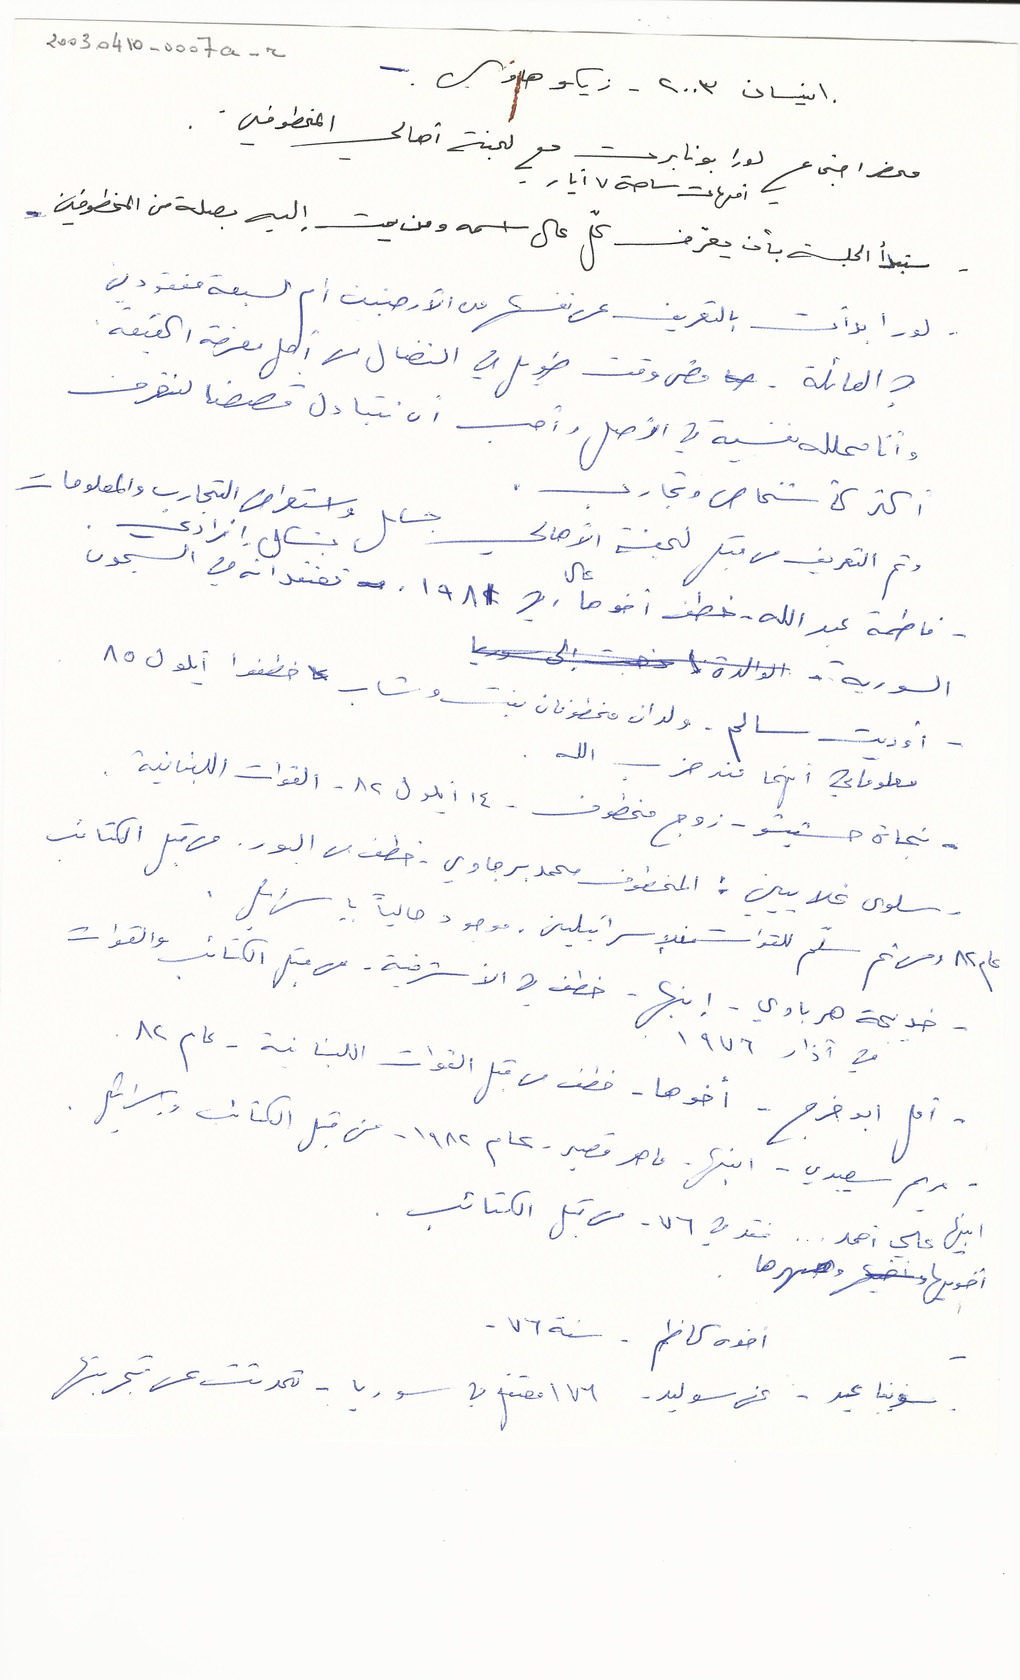 20030410-0007a-r
١٠ نيسان ٢٠٠٣ - زيكو هاوس -
محضر اجتماع لورا بونابرت مع لجنة أهالي المخطوفين .
أمهات ساحة ٧ أيار
- ستبدأ الجلسة بأن يعرّف كلّ عن اسمه ومن يمت إليه بصلة من المخطوفين -
- لورا بدأت بالتعريف عن نفسها من الأرجنتين أم لسبعة مفقودين
في العائلة - مضى وقت طويل في النضال من أجل معرفة الحقيقة .
وأنا محللة نفسية في الأصل وأحب أن نتبادل قصصنا لنتعرف
أكثر كأشخاص وتجارب .
وتم التعريف من قبل لجنة الأهالي واستعراض التجارب والمعلومات
بشكل إفرادي .
- فاطمة عبد الله - خطف أخوها علي في ١٩٨١ . نعتقد أنه في السجون
السورية - الوالدة ذهبت إلى سوريا
- أوديت سالم - ولدان مخطوفان بنت وشاب خطفوا أيلول ٨٥ .
معلوماتي أنهما عند حزب الله .
- نجاة حشيشو - زوج مخطوف - ١٤ أيلول ٨٢ - القوات اللبنانية .
- سلوى غلاييني : المخطوف محمد برجاوي - خطف من البور . من قبل الكتائب
عام ٨٢ ومن ثم سلّم للقوات الإسرائيليين ، موجود حالياً بإسرائيل .
- خديجة هرباوي - إبنها - خطف في الأشرفية - من قبل الكتائب والقوات
في آذار ١٩٧٦ .
- أمل ابو فرج - أخوها - خطف من قبل القوات اللبنانية - عام ٨٢ .
- مريم سعيدي - ابنها - ماهر قصير - عام ١٩٨٢ - من قبل الكتائب وإسرائيل .
ابنها علي أحمد ... فقد في ٧٦ - من قبل الكتائب .
أخويها وصهرها .
- أخوه كاظم - سنة ٧٦ -
- سونيا عيد - عن سوليد - ١٧٦ معتقل في سوريا - تحدثت عن تجربتها